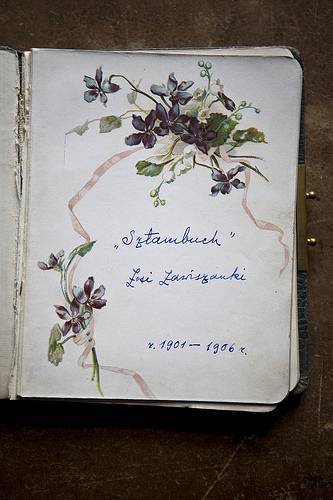 „Sztambuch"
Zosi Zawiszanki
r. 1901 — 1906 r.